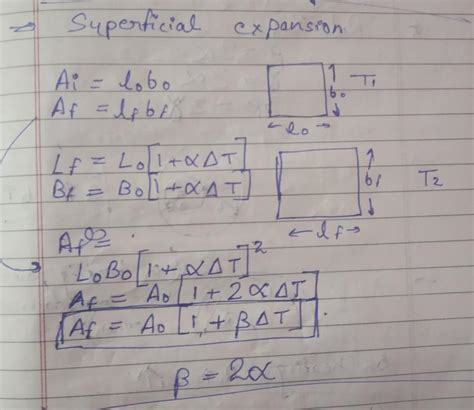 ⇒ Superficial expansion
Ai = l₀b₀
Af = lfbf
T₁
b₀
← l₀ →
Lf = L₀[1+αΔT]
Bf = B₀[1+αΔT]
bf
T₂
← lf →
Af =
L₀B₀[1+αΔT]²
Af = A₀[1+2αΔT]
Af = A₀[1+βΔT]
β = 2α